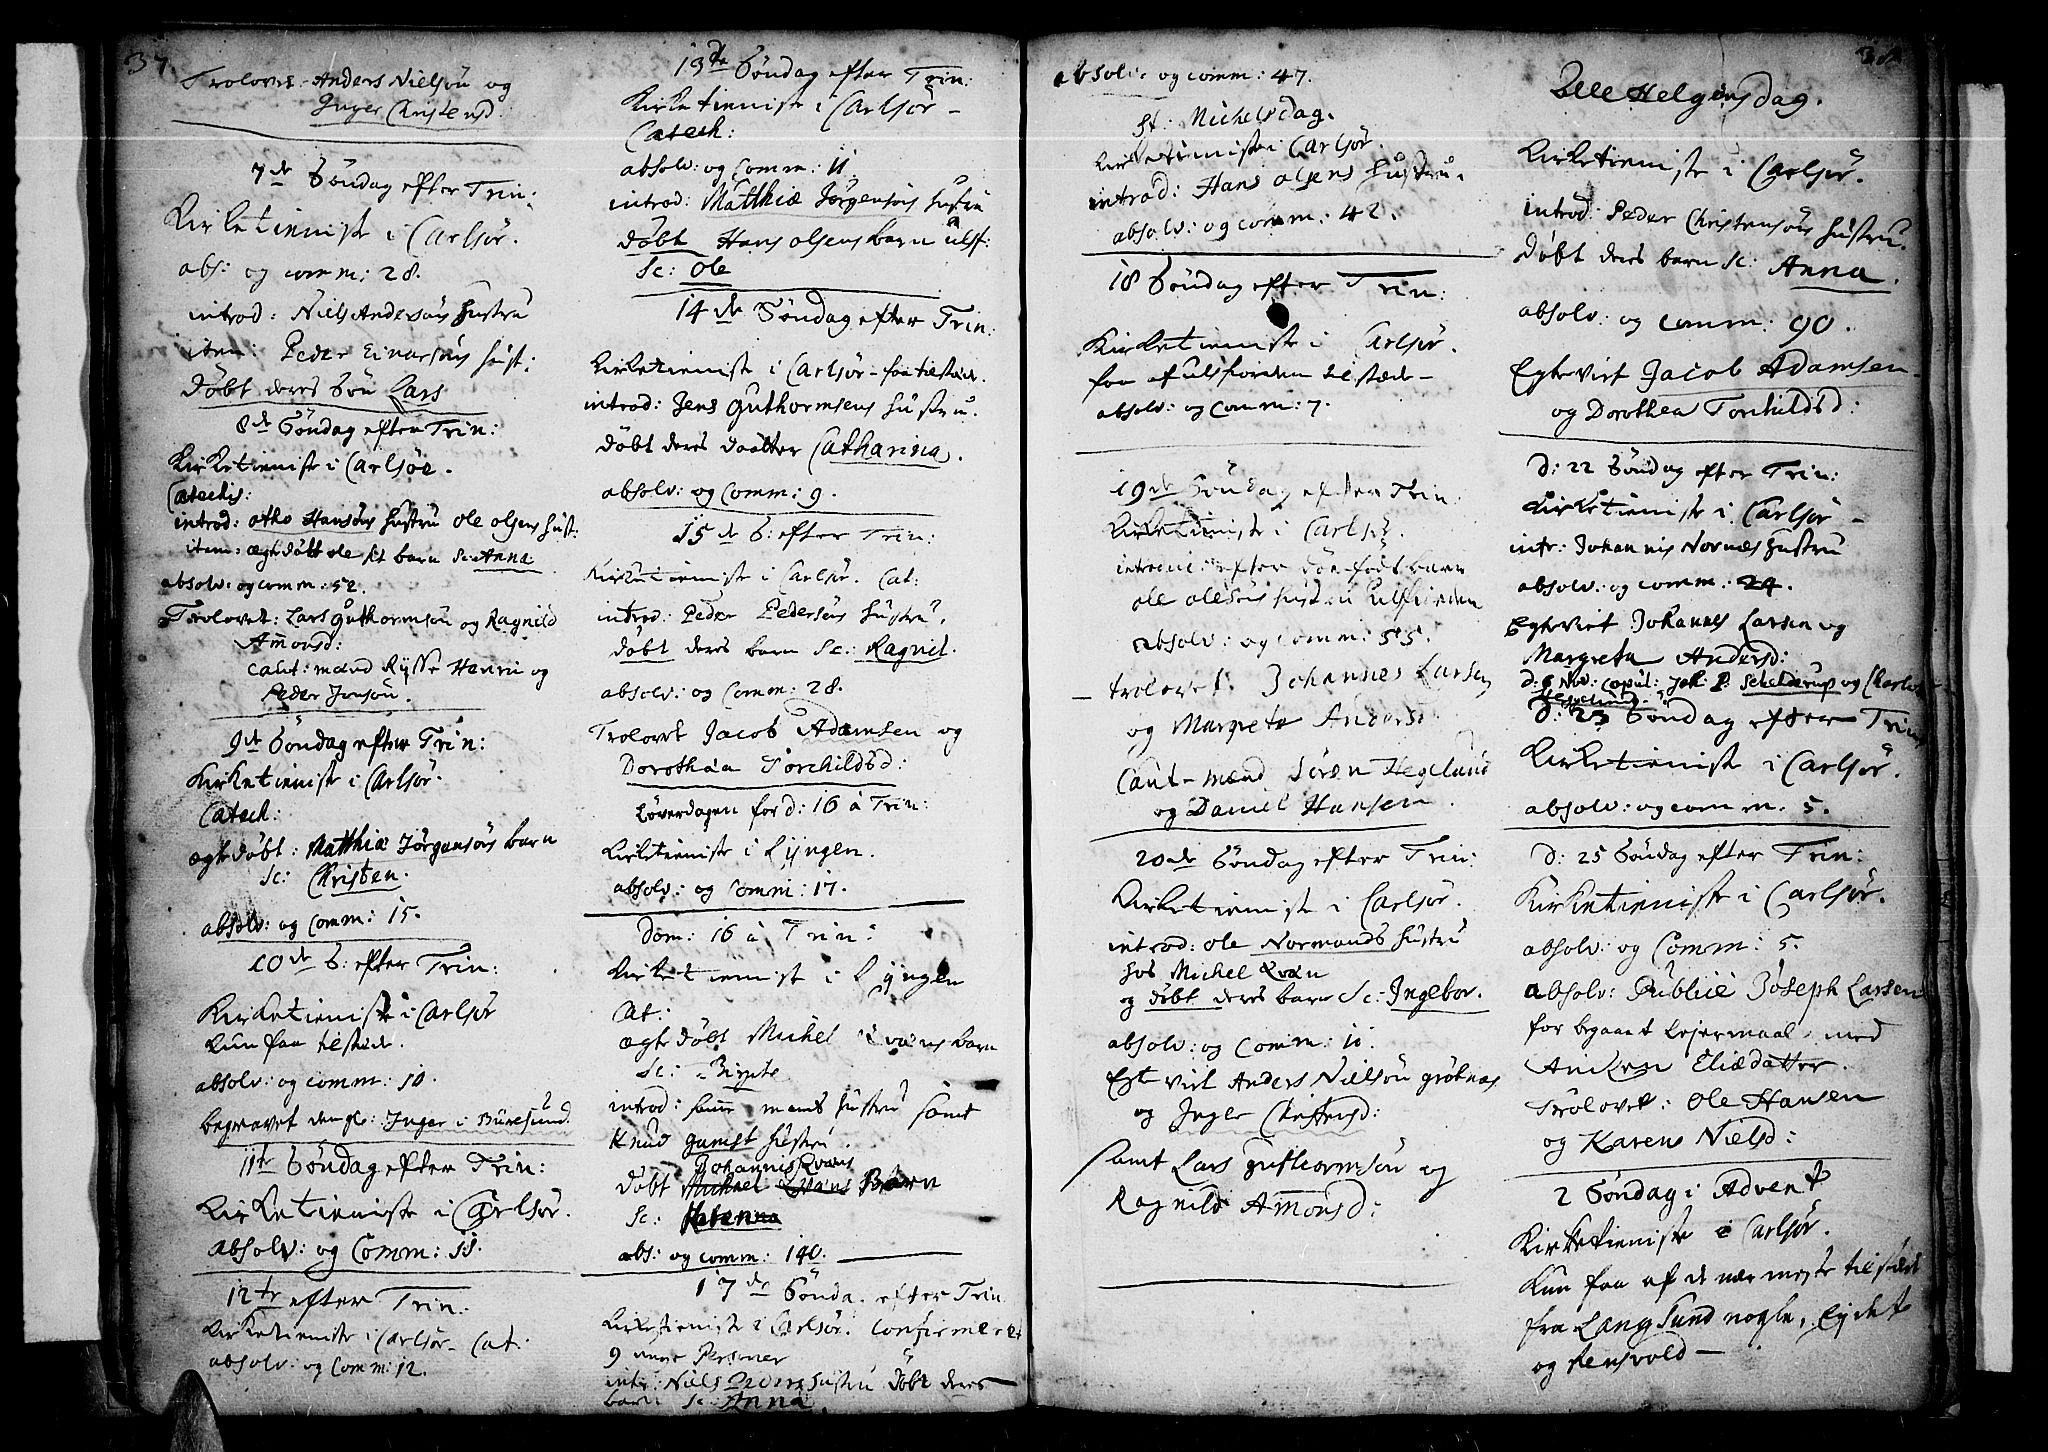 37.
Trolovet Anders Nielsön og
Inger Christensd.
7de Söndag efter Trin:
Kirketieniste i Carlsör.
abs: og comm: 28.
introd: Niels Andersöns Hustru
item: Peder Einarsöns Hust:
Döbt deres Sön Lars
8de Söndag efter Trin:
Kirketieniste i Carlsöe.
Catechis:
introd: Otho Hansöns Hustru Ole Olsens Hust:
item: ægte Döbt barn Sc: Anna
absolv: og comm: 52.
Trolovet: Lars Guthormsön og Ragnild
Amonsd:
caut: mænd Henrie og
Peder Jonsön.
9de Söndag efter Trin:
Kirketieniste i Carlsör.
Catech:
ægte döbt: Matthiæ Jörgensöns barn
Sc: Christen.
absolv: og Comm: 15.
10de S: efter Trin:
Kirketieniste i Carlsör
kun faa tilstede.
absolv: og comm: 10.
begravet den gl: Inger i Buresund.
11te Söndag efter Trin:
Kirketieniste i Carlsör.
absolv: og Comm: 11.
12te efter Trin:
Kirketieniste i Carlsör. Cat:
absolv: og Comm: 12.
13de Söndag efter Trin:
Kirketieniste i Carlsör
Catech:
absolv: og Comm: 11
introd: Matthiæ Jörgensöns Hustru
Döbt Hans Olsens barn ulsf:
Sc: Ole
14de Söndag efter Trin:
Kirketieniste i Carlsör faa tilstede.
introd: Jens Guthormsens Hustru.
Döbt deres Daatter Catharina.
absolv: og Comm: 9.
15de S: efter Trin:
Kirketieniste i Carlsör. Cat:
introd: Peder Pedersöns Hustru.
Döbt deres barn Sc: Ragnil.
absolv: og Comm: 28.
Trolovet Jacob Adamsen og
Dorothea Torchildsd:
Löverdagen for d: 16 à Trin:
Kirketieniste i Lyngen.
absolv: og Comm: 17.
Dom: 16 à Trin:
Kirketieniste i Lyngen
Cat:
ægte Döbt Michel Qvæns barn
Sc: Birgite
introd: samme mands Hustru samt
Knud Hustru.
Johannis Qvæns
Döbt Michael Qvæns Barn
Sc:
abs: og comm: 140.
17de Sönda. efter Trin
Kirketieniste i Carlsör. confirmeret
9 unge Personer
intr: Niels Hustru Döbt deres
barn Sc: Anna.
38
absolv: og comm: 47.
St: Michelsdag.
Kirketieniste i Carlsör.
introd: Hans Olsens Hustru.
absolv: og comm: 42.
18 Söndag efter Trin:
Kirketieniste i Carlsör.
faa af ulsfiorden tilstede
absolv: og Comm: 7.
19de Söndag efter Trin
Kirketieniste i Carlsö.
efter Dödfödt barn
Ole Olesöns Hustru i Ulsfiorden
absolv: og comm: 55.
trolovet. Johannes Larsen
og Margrete Andersd:
Caut-mænd Sören Hegelund
og Daniel Hansen.
20de Söndag efter Trin:
Kirketieniste i Carlsör.
introd: Ole Normands Hustru
hos Michel Qvæn
og döbt deres barn Sc: Ingebor.
absolv: og Comm: 11.
Egteviet Anders Nielsön grötnæs
og Inger Christensd:
samt Lars Guthormsön og
Ragnild Amonsd:
Alle Helgensdag.
Kirketieniste i Carlsör.
introd: Peder Christensöns Hustru.
döbt deres barn Sc: Anna.
absolv: og comm: 90.
Egteviet Jacob Adamsen
og Dorothea Torchildsd:
D: 22 Söndag efter Trin:
Kirketieniste i Carlsör
intr: Johannis Normæs Hustru
absolv: og comm: 24.
Egteviet Johannes Larsen og
Margreta Andersd:
d: 6 Nov: Copul: Joh: P: Schelderup og
D: 23 Söndag efter Trin
Kirketieniste i Carlsör.
absolv: og comm: 5.
D: 25 Söndag efter Trin:
Kirketieniste i Carlsör.
absolv: og Comm: 5.
absolv: Publice Joseph Larsen
for begaaet Lejermaal med
Aniken Eliædatter.
Trolovet: Ole Hansen
og Karen Nielsd:
2 Söndag i Advent
Kirketieniste i Carlsör.
Kun faa af de nærmeste tilstede
fra Langsund nogle,
og Rensvold